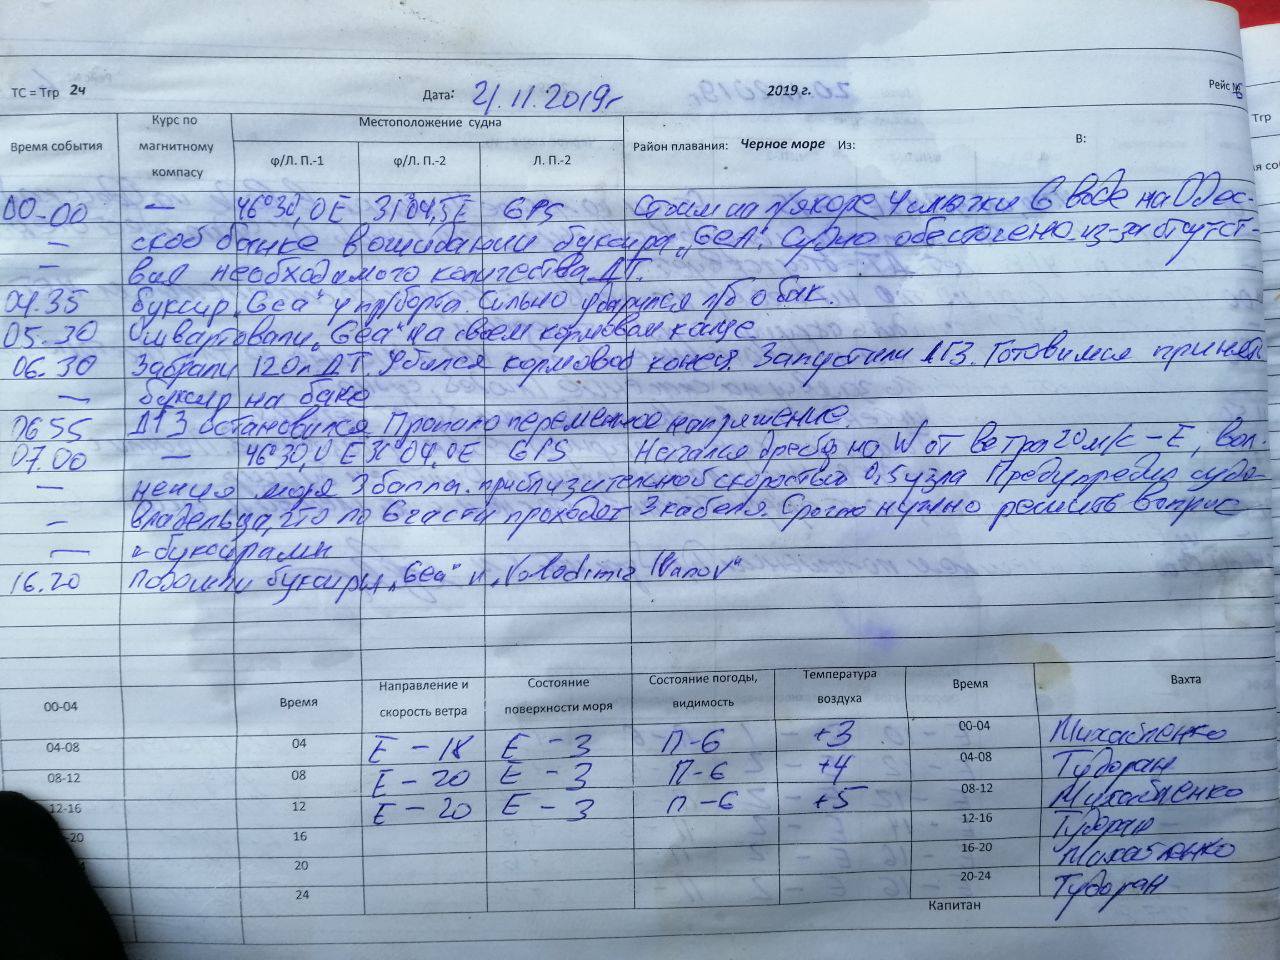 ТС = Тгр 2ч Дата: 21.11.2019г 2019 г. Рейс № 6
Время события Курс по магнитному компасу Местоположение судна Район плавания: Черное море Из: В:
φ/Л. П.-1 φ/Л. П.-2 Л. П.-2
00-00 — 46°30,0E 31°04,5E GPS Стоим на л/якоре 4 смычки в воде на Одес-
— ской банке в ошибании буксира „Gea". Судно обесточено из-за отсутст-
— вия необходимого количества ДТ.
04.35 Буксир „Gea" у пр/борта. Сильно ударился л/б о бак.
05.30 Ошвартовали „Gea" на своем кормовом конце.
06.30 Забрали 120л ДТ. Убился кормовой конец. Запустили ДГ3. Готовимся принять
— буксир на баке
0655 ДГ3 остановился. Пропало переменное напряжение.
07.00 — 46°30,0E 31°04,0E GPS Начался дрейф на W от ветра 20м/с – E, вол-
— нения моря 3 балла. приблизительной скоростью 0,5 узла Предупредил судо-
— владельца, что по 6 части проходят 3 кабеля. Срочно нужно решить вопрос
— с буксирами
16.20 Подошли буксиры „Gea" и „Volodimir Ivanov"
00-04 Время Направление и скорость ветра Состояние поверхности моря Состояние погоды, видимость Температура воздуха Время Вахта
04-08 04 E – 18 E – 3 П-6 +3 00-04 Михайленко
08-12 08 E – 20 E – 3 П-6 +4 04-08 Тудоран
12-16 12 E – 20 E – 3 П-6 +5 08-12 Михайленко
-20 16 12-16 Тудоран
20 16-20 Михайленко
24 20-24 Тудоран
Капитан